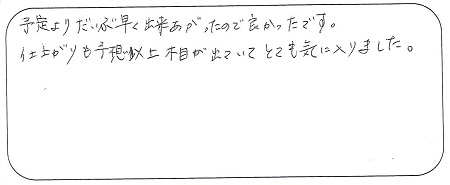 予定よりだいぶ早く出来あがったので良かったです。
仕上がりも予想以上木目が出ていてとても気に入りました。